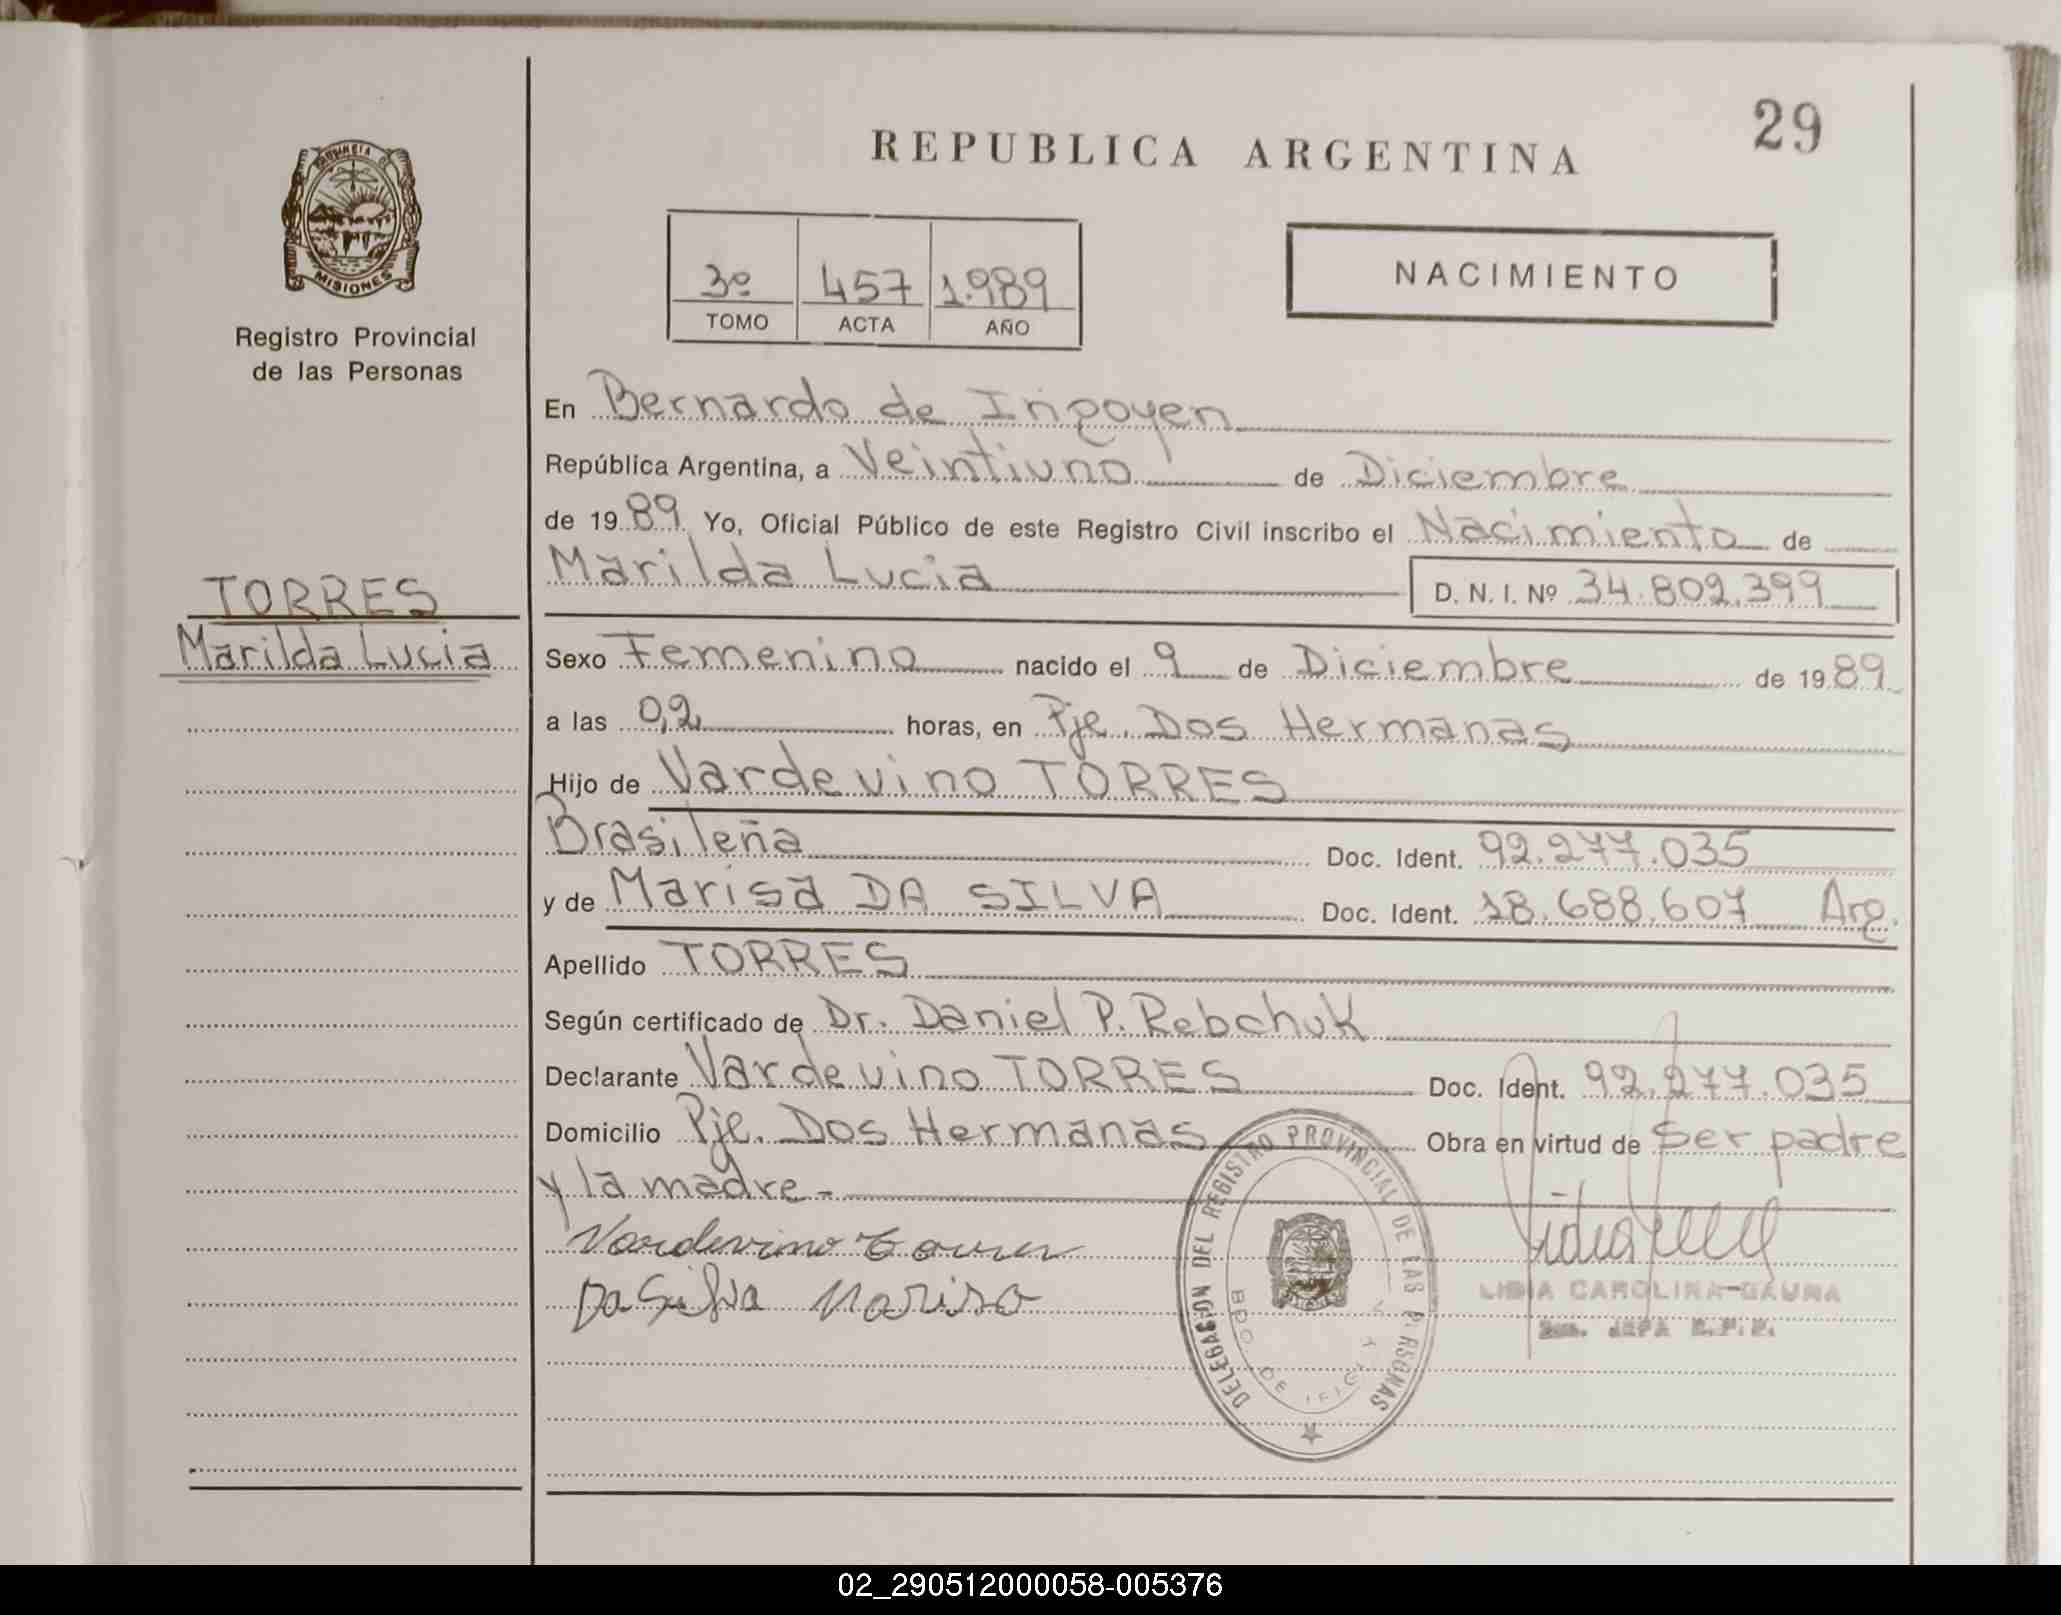 29
REPUBLICA ARGENTINA
PROVINCIA DE
MISIONES
Registro Provincial
de las Personas
3º 457 1.989
TOMO ACTA AÑO
NACIMIENTO
En Bernardo de Irigoyen
República Argentina, a Veintiuno de Diciembre
de 1989 Yo, Oficial Público de este Registro Civil inscribo el Nacimiento de
Marilda Lucia D. N. I. Nº 34.802.399
TORRES
Marilda Lucia
Sexo Femenino nacido el 9 de Diciembre de 1989
a las 0,2 horas, en Pje. Dos Hermanas
Hijo de Vardevino TORRES
Brasileña Doc. Ident. 92.277.035
y de Marisa DA SILVA Doc. Ident. 18.688.607 Arg.
Apellido TORRES
Según certificado de Dr. Daniel P. Rebchuk
Declarante Vardevino TORRES Doc. Ident. 92.277.035
Domicilio Pje. Dos Hermanas Obra en virtud de Ser padre
y la madre.-
Vardevino Torres
Da Silva Mariza
DELEGACION DEL REGISTRO PROVINCIAL DE LAS PERSONAS
BDO. DE
LIDIA CAROLINA GAUNA
JEFA R.P.P.
02_290512000058-005376